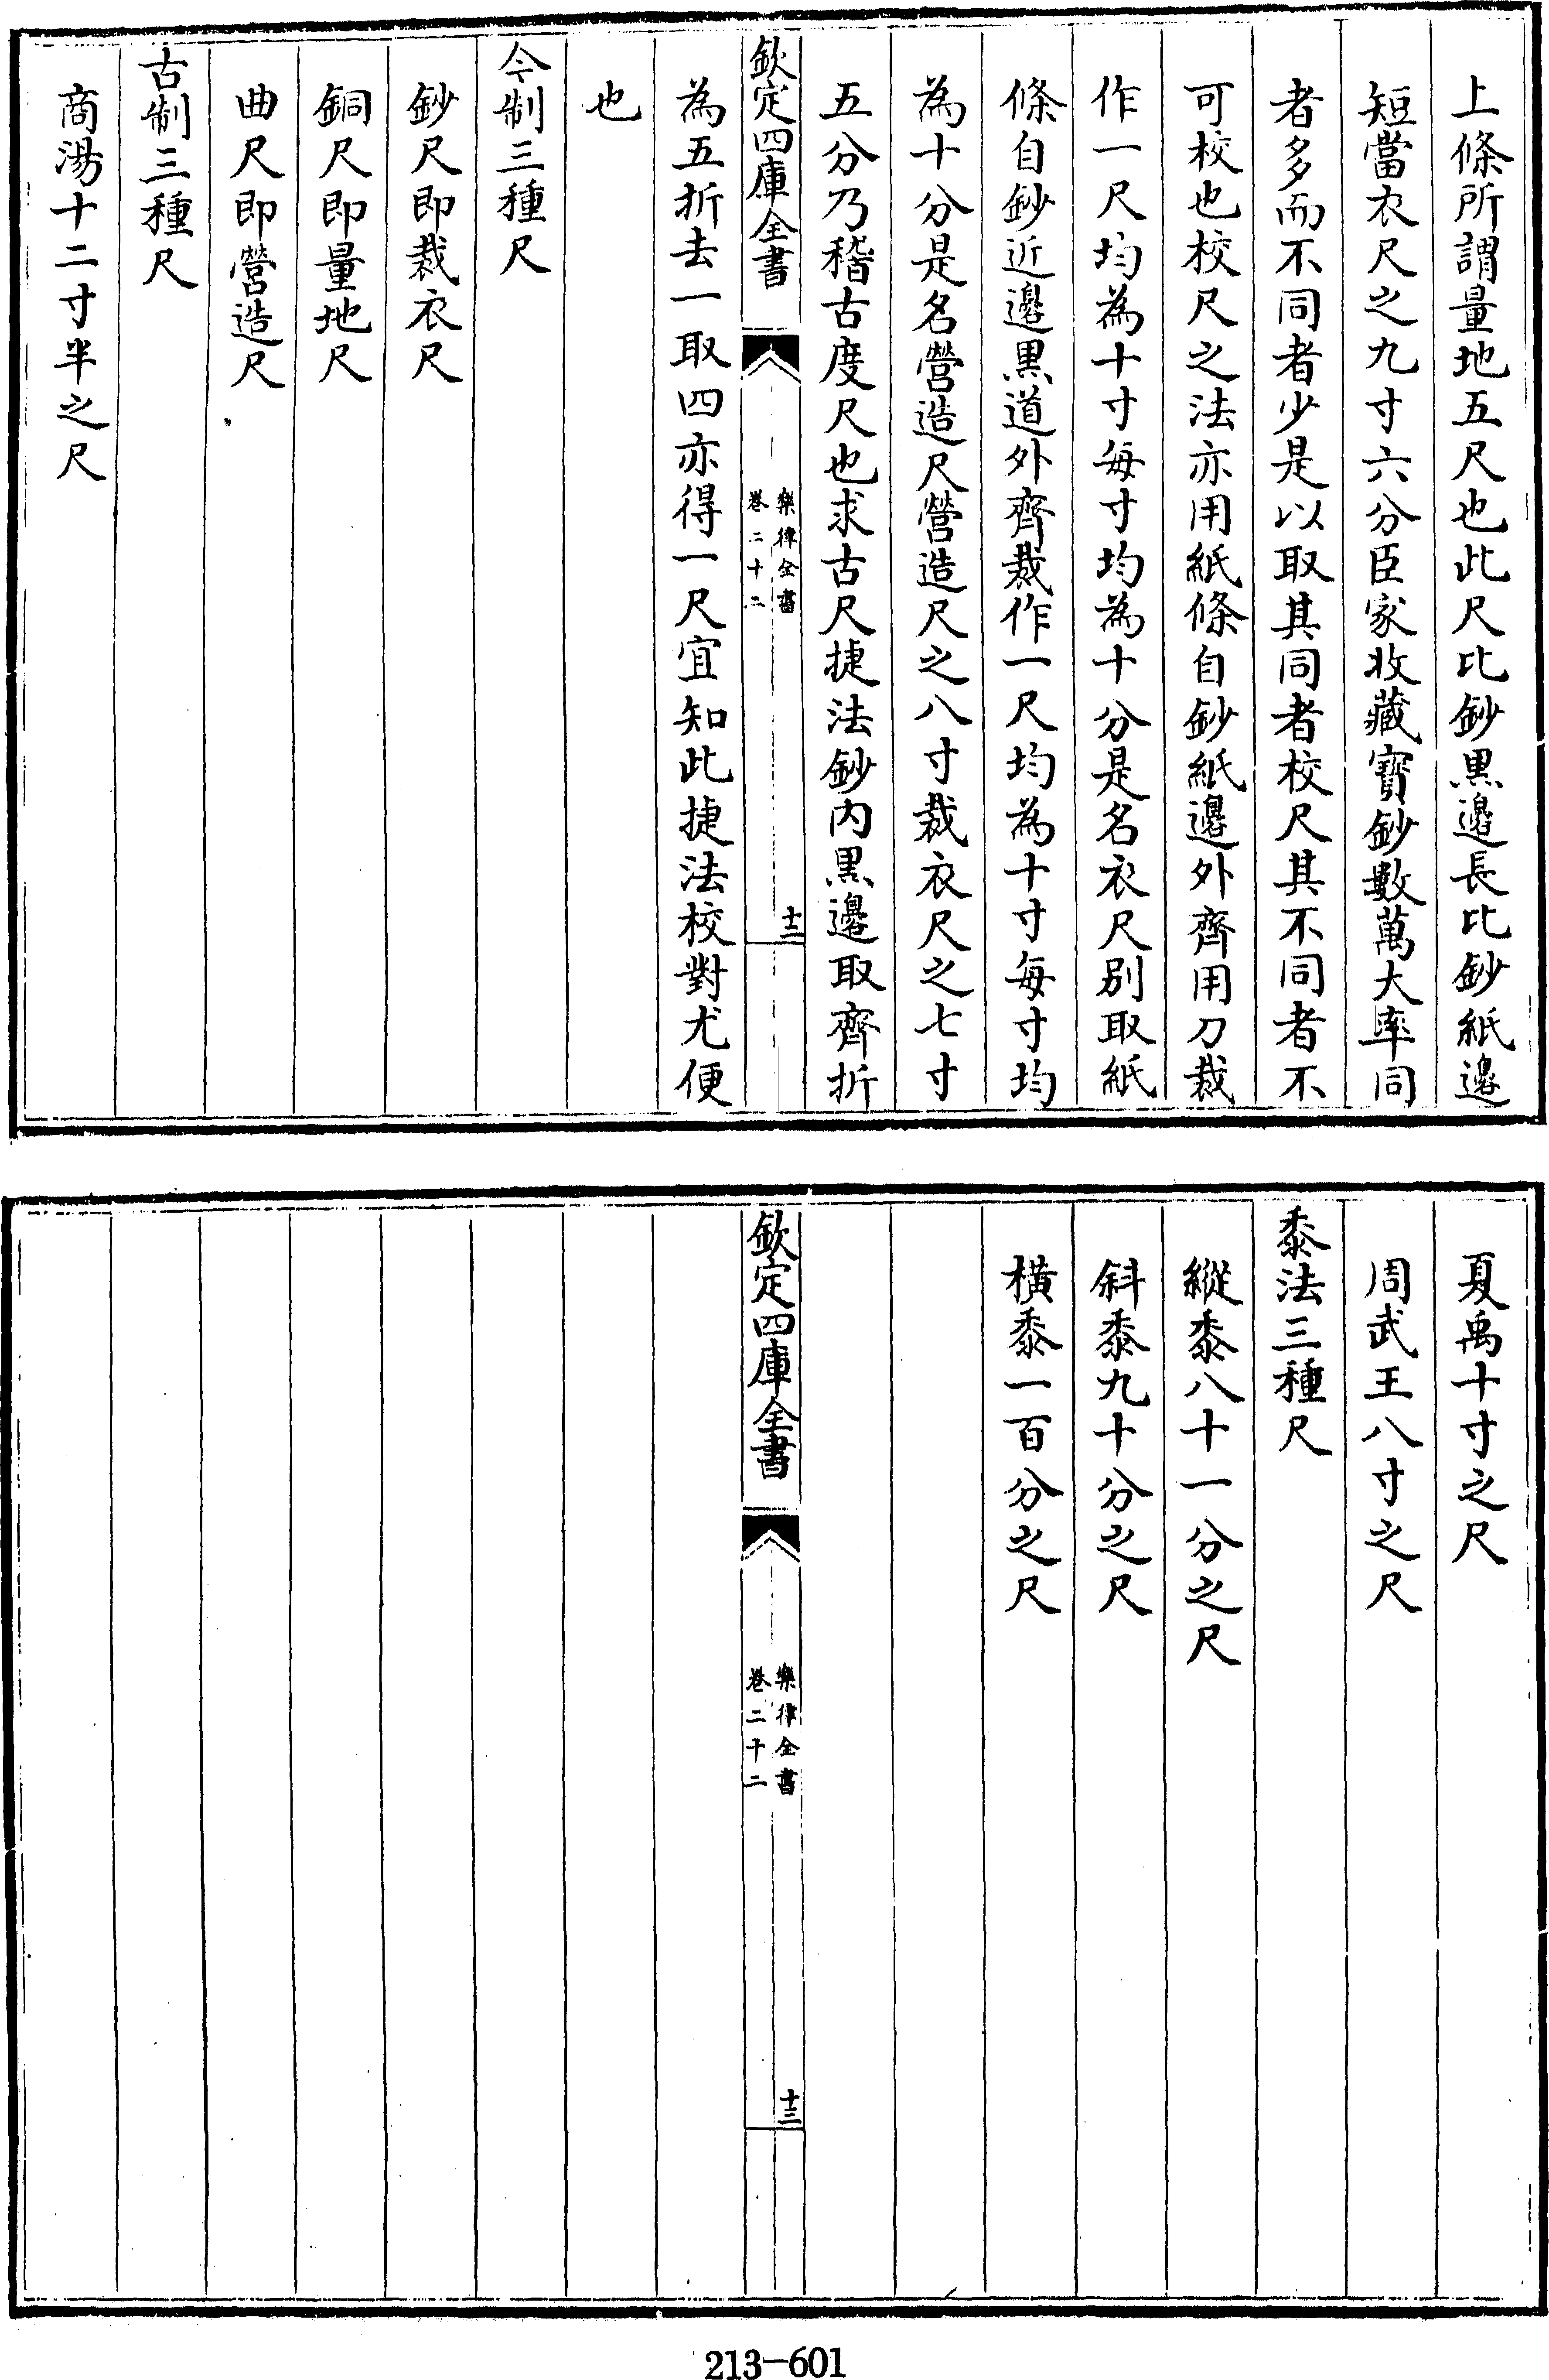 上條所謂量地五尺也此尺比鈔黒邉長比鈔紙邉
短當衣尺之九寸六分臣家收藏寳鈔數萬大率同
者多而不同者少是以取其同者校尺其不同者不
可校也校尺之法亦用紙條自鈔紙邉外齊用刀裁
作一尺均為十寸每寸均為十分是名衣尺別取紙
條自鈔近邉黒道外齊裁作一尺均為十寸每寸均
為十分是名營造尺營造尺之八寸裁衣尺之七寸
五分乃稽古度尺也求古尺捷法鈔内黒邉取齊折
欽定四庫全書
樂律全書
卷二十二
十二
為五折去一取四亦得一尺宜知此捷法校對尤便
也
今制三種尺
鈔尺即裁衣尺
銅尺即量地尺
曲尺即營造尺
古制三種尺
商湯十二寸半之尺
夏禹十寸之尺
周武王八寸之尺
黍法三種尺
縱黍八十一分之尺
斜黍九十分之尺
橫黍一百分之尺
欽定四庫全書
樂律全書
卷二十二
十三
213-601